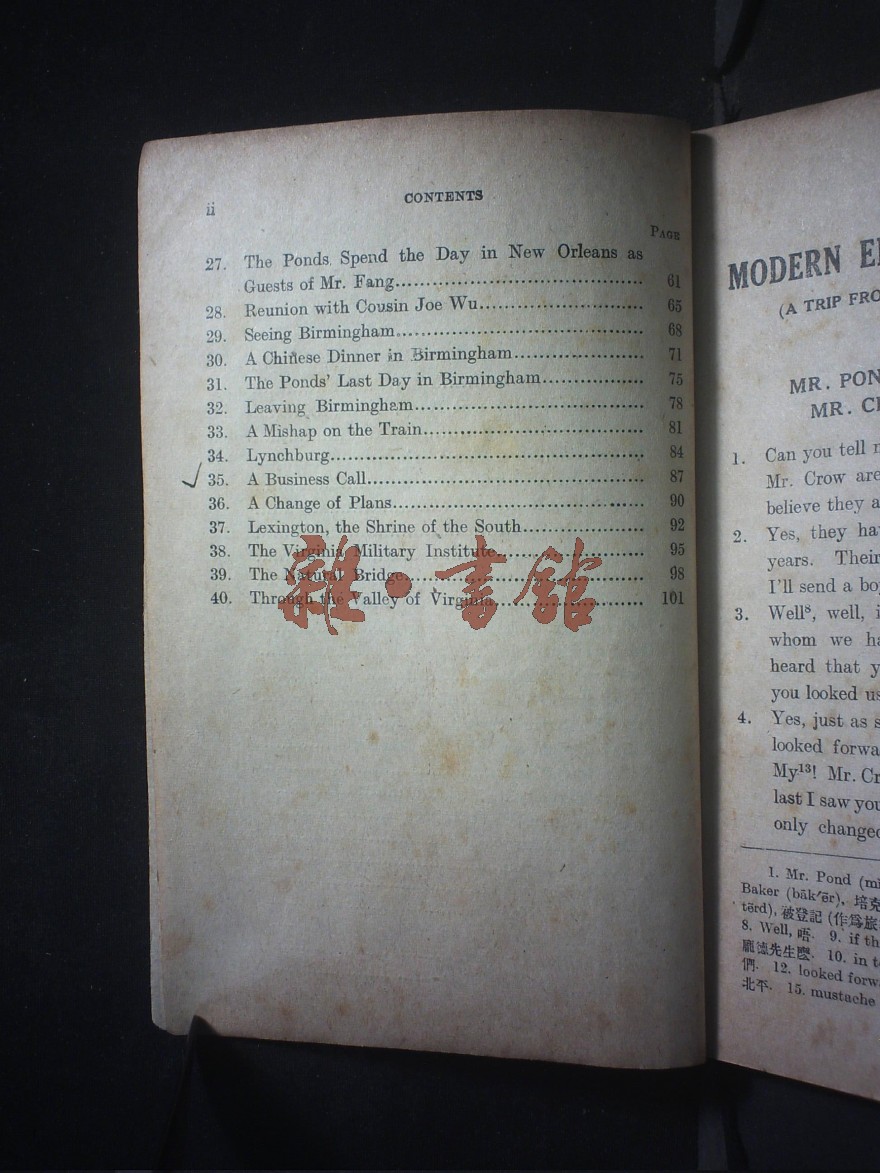 ii
CONTENTS
PAGE
27. The Ponds Spend the Day in New Orleans as
Guests of Mr. Fang 61
28. Reunion with Cousin Joe Wu 65
29. Seeing Birmingham 68
30. A Chinese Dinner in Birmingham 71
31. The Ponds' Last Day in Birmingham 75
32. Leaving Birmingham 78
33. A Mishap on the Train 81
34. Lynchburg 84
35. A Business Call 87
36. A Change of Plans 90
37. Lexington, the Shrine of the South 92
38. The Virginia Military Institute 95
39. The Natural Bridge 98
40. Through the Valley of Virginia 101
雜·書館
MODERN
(A TRIP
MR.
MR.
1. Can you tell
Mr. Crow are
believe they
2. Yes, they
years. Their
I'll send a
3. Well⁸, well,
whom we
heard that
you looked
4. Yes, just as
looked
My¹³! Mr.
last I saw
only
1. Mr. Pond
Baker (bāk′ẽr), 培克
tẽrd), 被登記 (作爲旅
8. Well, 唔. 9. if
龐德先生麼. 10. in
們. 12. looked
北平. 15. mustache